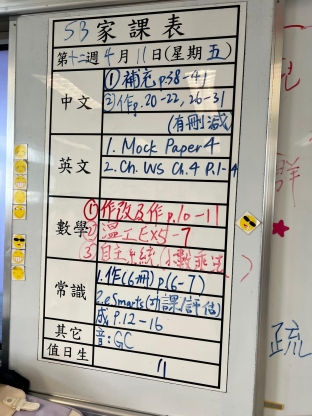 5B 家課表
第十二週4月11日(星期五)
中文
①補充p.38-41
②作p.20-22, 26-31
(有刪減)
英文
1. Mock Paper 4
2. Ch. WS Ch.4 P.1-4
數學
①作改及作p.10-11
②溫工EX5-7
③自主
(小數乘法)
常識
1.作(6冊)p.(6-7)
2.eSmarts(功課/評估)
成 P.12-16
其它
音:GC
值日生
11
群
疏